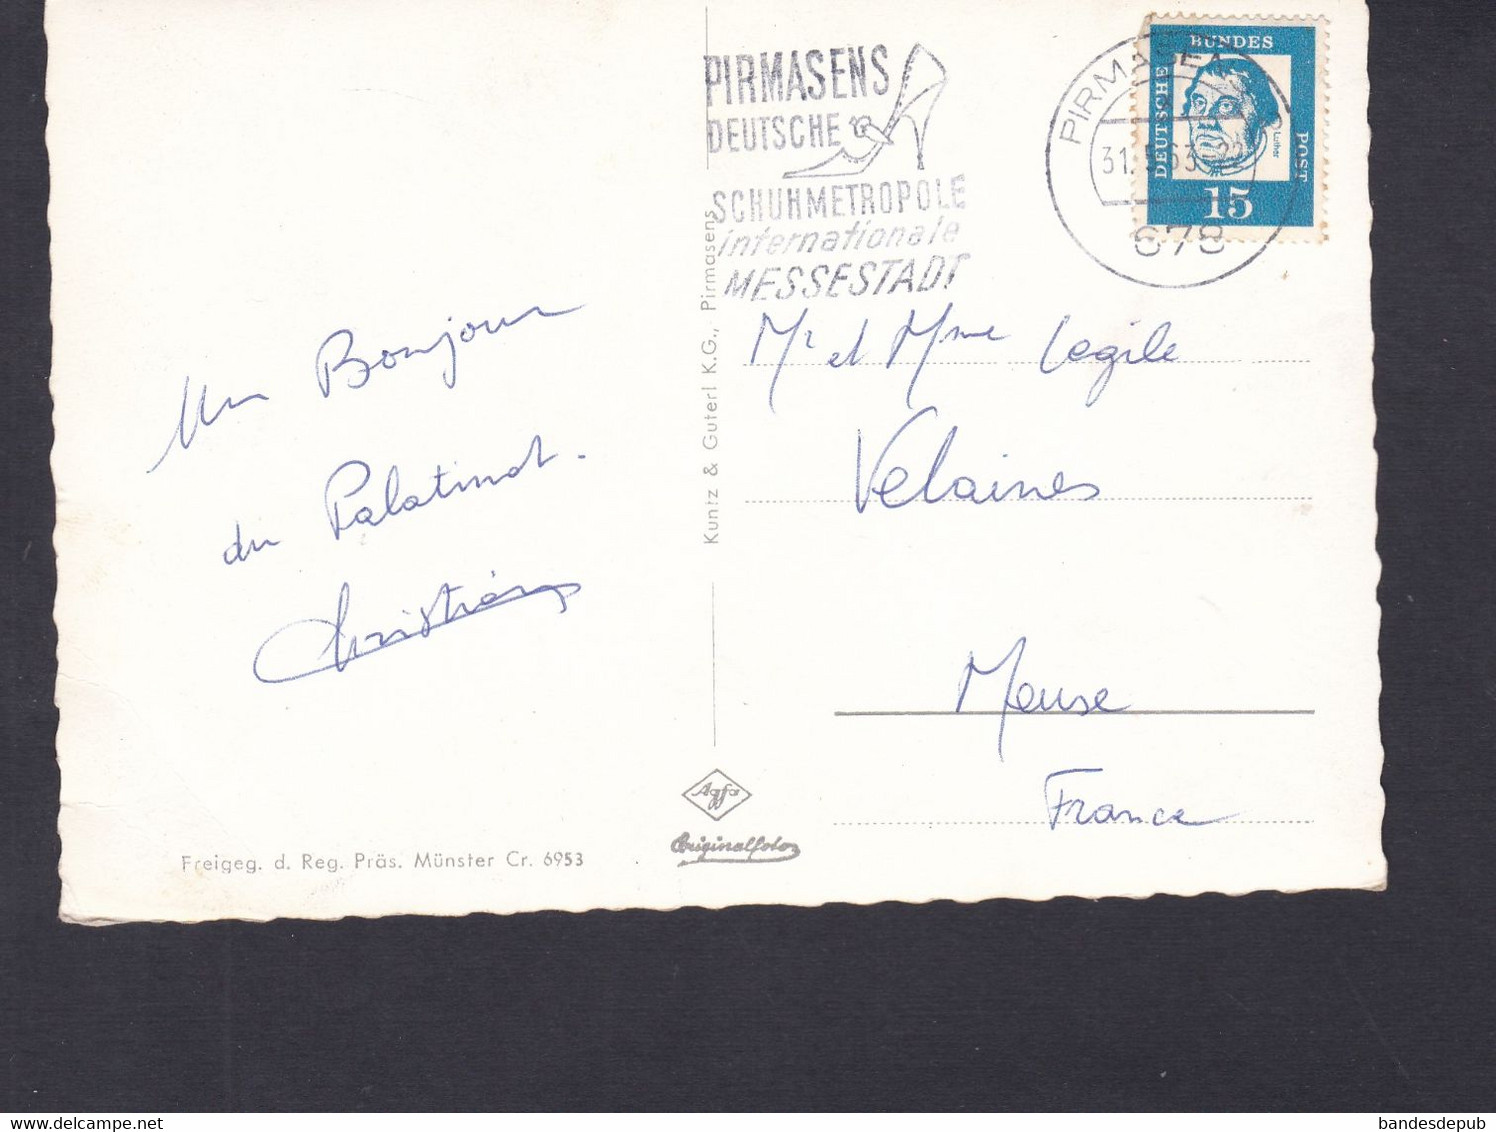 PIRMASENS
DEUTSCHE
SCHUHMETROPOLE
internationale
MESSESTADT
PIRMASENS
31.5.63-22
678
DEUTSCHE
BUNDES
POST
Luther
15
Un Bonjour
du Palatinat.
Christiane
Kuntz & Guterl K.G., Pirmasens
Mr et Mme Legile
Velaines
Meuse
France
Agfa
Originalfoto
Freigeg. d. Reg. Präs. Münster Cr. 6953
bandesdepub